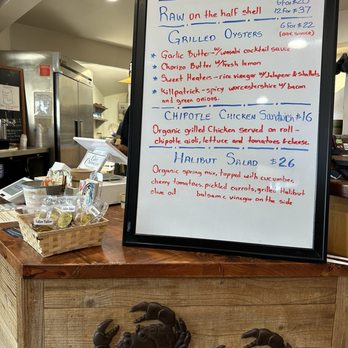 6 For $20
RAW on the half shell 12 For $37
GRILLED OYSTERS 6 For $22
* Garlic Butter - w/ wasabi cocktail sauce
* Chorizo Butter w/ fresh lemon
* Sweet Heater - rice vinegar w/ Jalapeno & shallots
* Killpatrick - spicy worcestershire w/ bacon
and green onions.
CHIPOTLE CHICKEN Sandwich $16
Organic grilled Chicken served on roll -
chipotle aioli, lettuce and tomatoes & cheese.
HALIBUT SALAD $26
Organic spring mix, topped with cucumber,
cherry tomatoes, pickled carrots, grilled Halibut
olive oil balsamic vinegar on the side